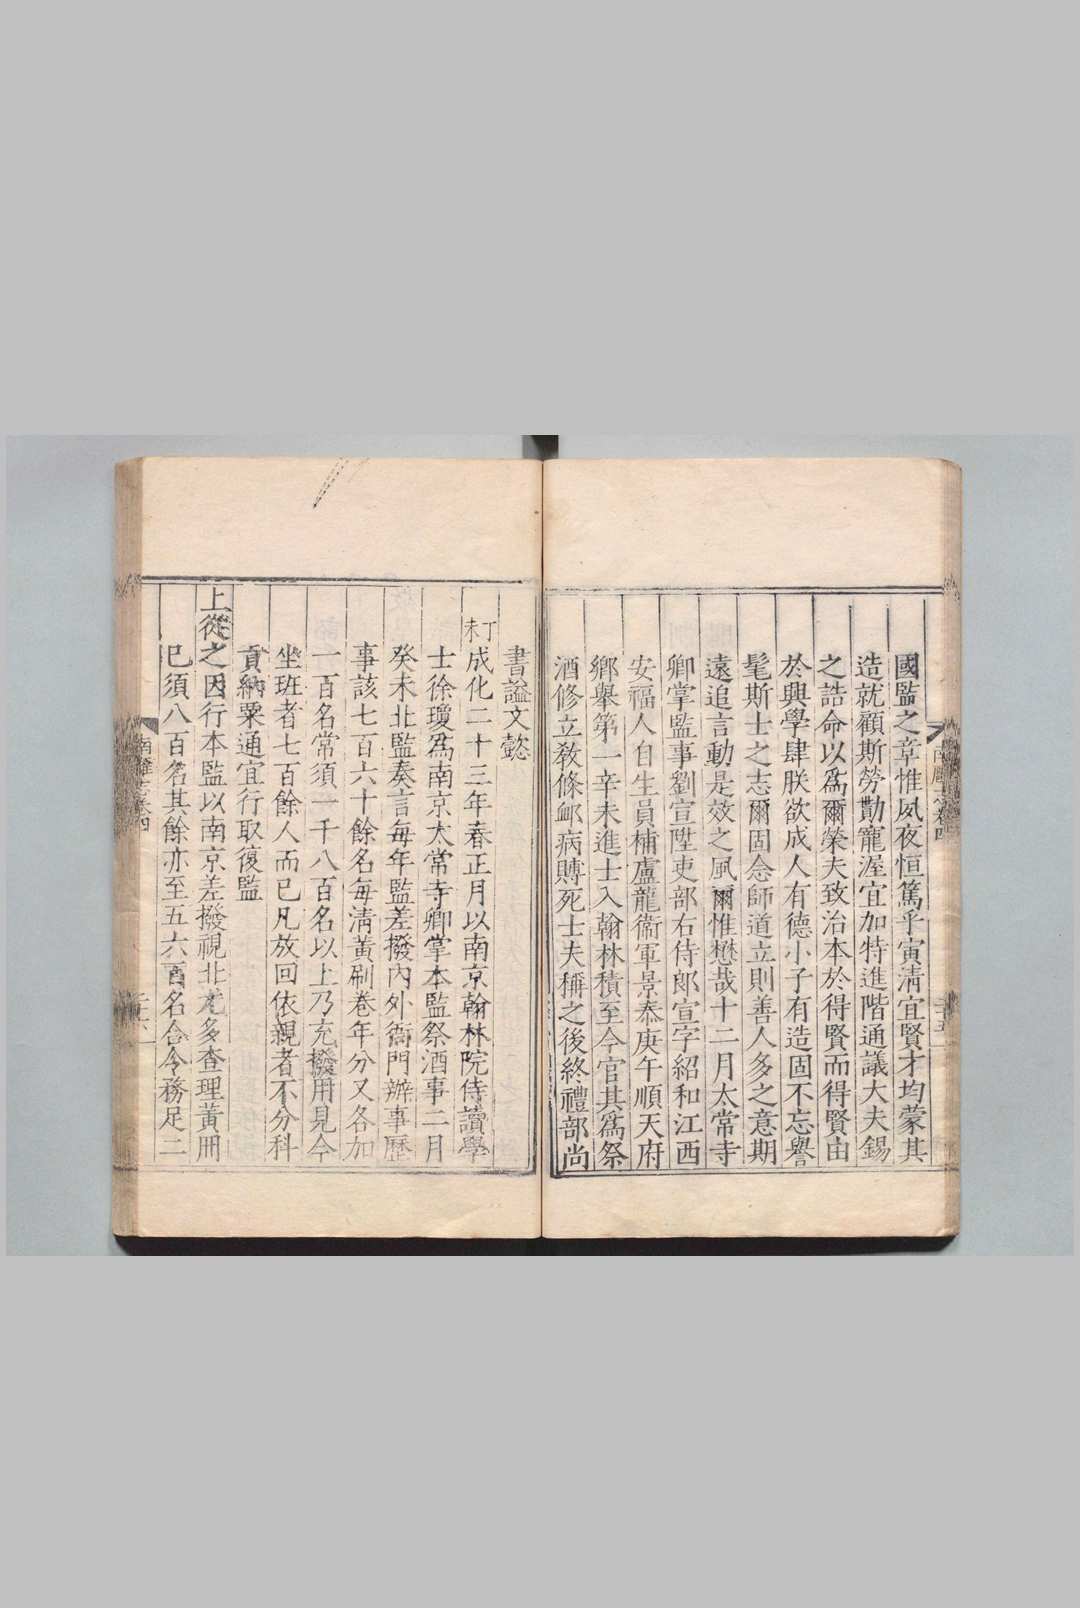 國監之章惟夙夜恒篤乎寅淸宜賢才均蒙其
造就顧斯勞勩寵渥宜加特進階通議大夫錫
之誥命以爲爾榮夫致治本於得賢而得賢由
於興學肆朕欲成人有德小子有造固不忘譽
髦斯士之志爾固念師道立則善人多之意期
遠追言動是效之風爾惟懋哉十二月太常寺
卿掌監事劉宣陞吏部右侍郎宣字紹和江西
安福人自生員補盧龍衞軍景泰庚午順天府
鄉舉第一辛未進士入翰林積至今官其爲祭
酒修立敎條邺病賻死士夫稱之後終禮部尚
書謚文懿
丁未成化二十三年春正月以南京翰林院侍讀學
士徐瓊爲南京太常寺卿掌本監祭酒事二月
癸未北監奏言每年監差撥內外衙門辦事歷
事該七百六十餘名每淸黃刷卷年分又各加
一百名常須一千八百名以上乃充撥用見今
坐班者七百餘人而已凡放回依親者不分科
貢納粟通宜行取復監
上從之因行本監以南京差撥視北尤多查理黃冊
已須八百名其餘亦至五六百名合令務足二
南雝志卷四